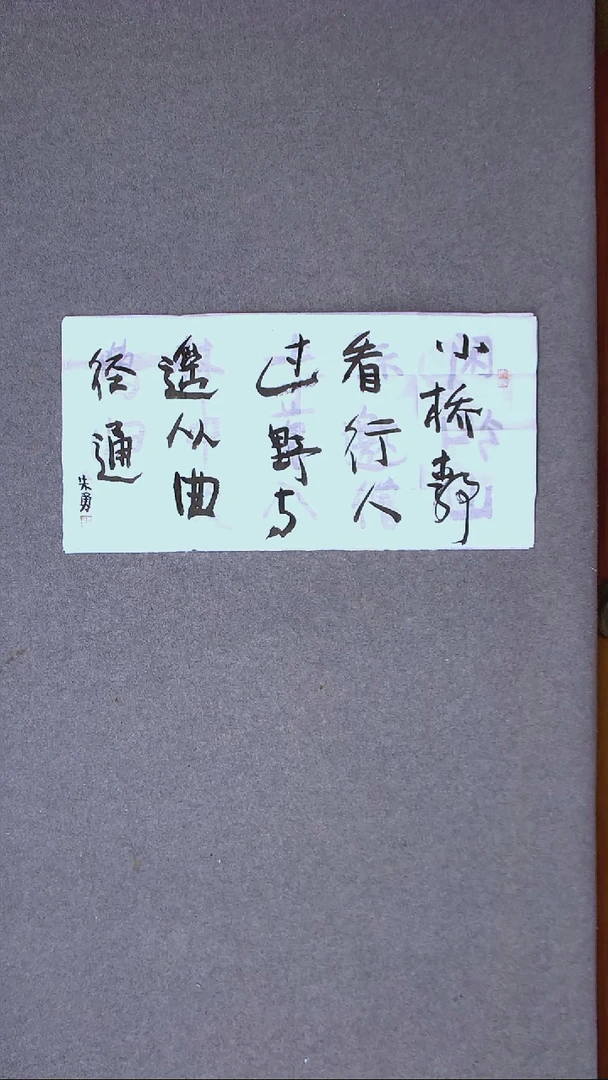 小桥静
看行人
过野与
遥从曲
径通
朱勇